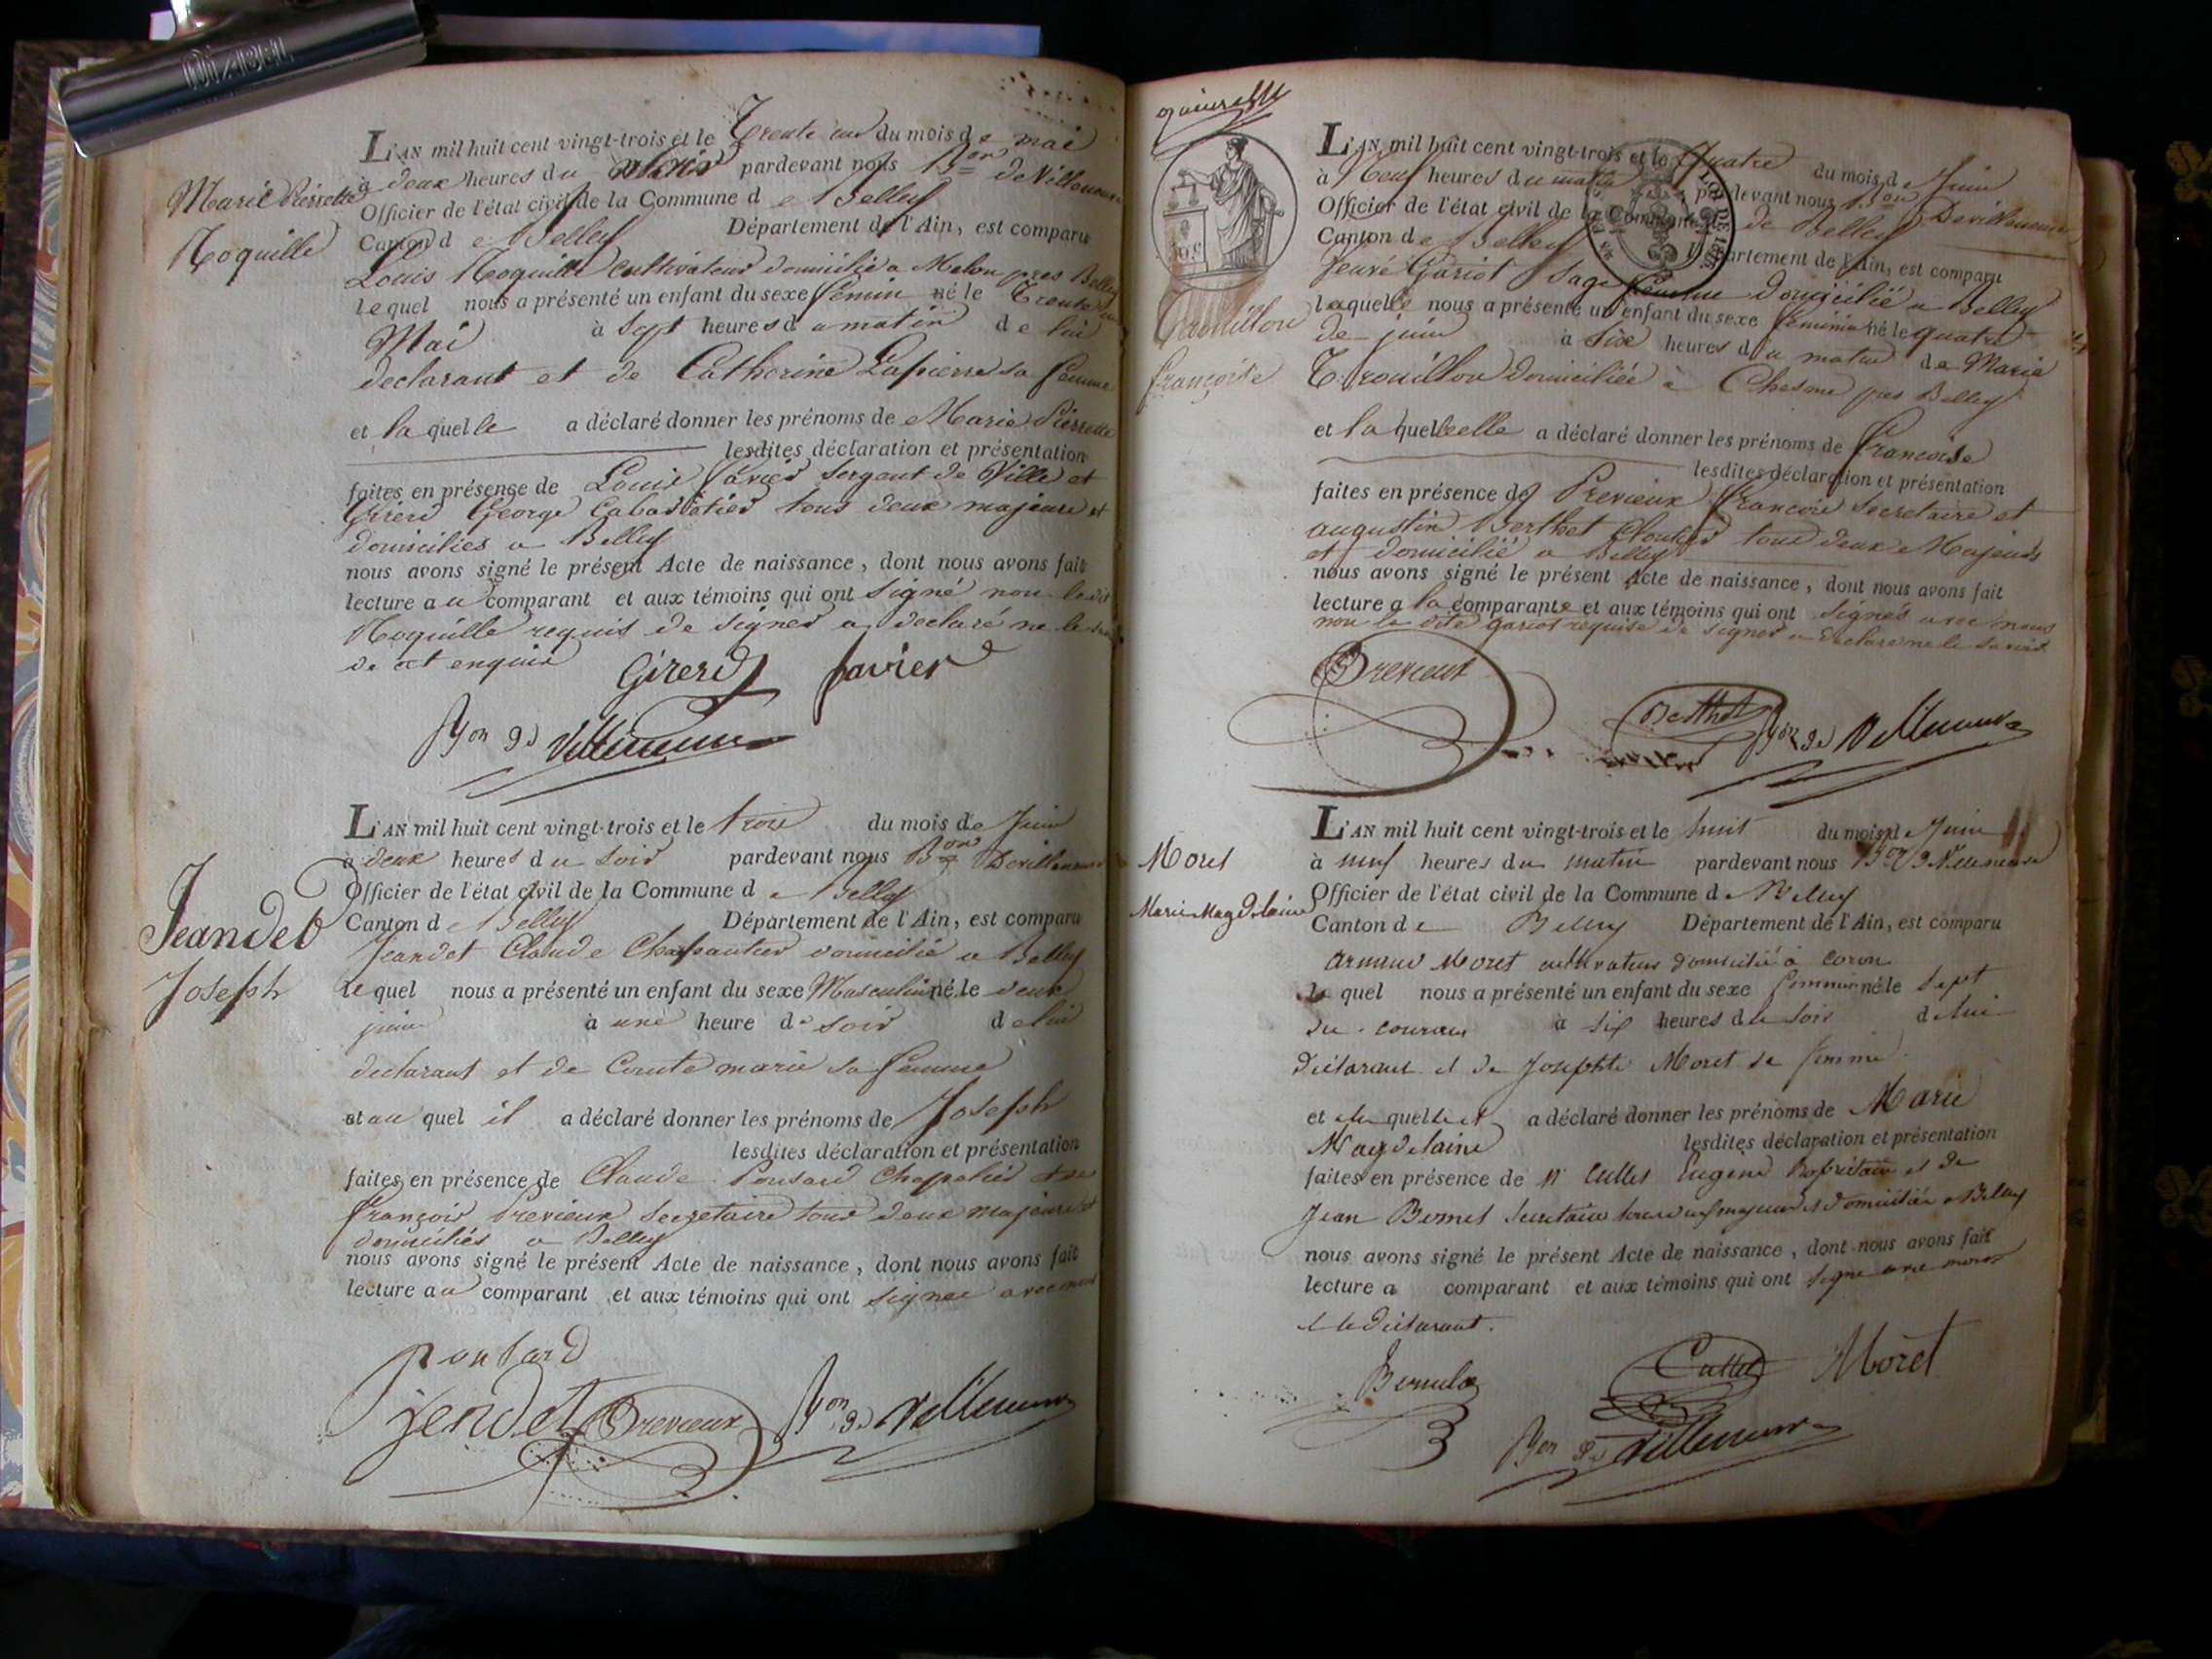 L'AN mil huit cent vingt-trois et le Trente un du mois de mai
à deux heures du pardevant nous Bon de Villeneuve
Officier de l'état civil de la Commune de Belley
Canton de Belley Département de l'Ain, est comparu
Louis Roquille cultivateur domicilié a Melon pres Belley
Lequel nous a présenté un enfant du sexe femin né le Trente un
Mai à sept heures du matin de lui
declarant et de Catherine Lapierre sa femme
et la quelle a déclaré donner les prénoms de Marie Pierrette
lesdites déclaration et présentation
faites en présence de Louis favier sergant de Ville et
Girerd George Cabaretier tous deux majeurs et
domiciliés a Belley
nous avons signé le présent Acte de naissance, dont nous avons fait
lecture au comparant et aux témoins qui ont signé non ledit
Roquille requis de signer a declaré ne le
de ce enquis
Girerd favier
Bon de Villeneuve
Marie Pierrette
Roquille
L'AN mil huit cent vingt-trois et le trois du mois de Juin
à deux heures du soir pardevant nous Bon Devilleneuve
Officier de l'état civil de la Commune de Belley
Canton de Belley Département de l'Ain, est comparu
Jeandet Claude domicilié a Belley
le quel nous a présenté un enfant du sexe Masculin né le deux
juin à une heure de soir de lui
declarant et de Comte marie sa femme
et au quel il a déclaré donner les prénoms de Joseph
lesdites déclaration et présentation
faites en présence de Claude Ponsard Chapelier et de
françois Previeux Secretaire tous deux majeurs et
domiciliés a Belley
nous avons signé le présent Acte de naissance, dont nous avons fait
lecture au comparant et aux témoins qui ont signer avec nous
Ponsard
Jendet Previeux Bon de Villeneuve
Jeandet
Joseph
L'AN mil huit cent vingt-trois et le Quatre du mois de Juin
à Neuf heures du matin pardevant nous Bon Devilleneuve
Officier de l'état civil de la Commune de Belley
Canton de Belley Département de l'Ain, est comparu
Gariot Sage femme domicilié a Belley
laquelle nous a présenté un enfant du sexe feminin né le quatre
de juin à six heures du matin de Marie
Trouillon domiciliée à Chesme pres Belley
et la quelle elle a déclaré donner les prénoms de francoise
lesdites déclaration et présentation
faites en présence de Previeux francois Secretaire et
augustin Berthet tous deux Majeurs
et domicilié a Belley
nous avons signé le présent Acte de naissance, dont nous avons fait
lecture a la comparante et aux témoins qui ont signés avec nous
non la dite gariot requise de signer a declaré ne le savoir
Previeux
Berthet Bon de Villeneuve
naturelle
Trouillon
françoise
L'AN mil huit cent vingt-trois et le huit du mois de Juin
à neuf heures du matin pardevant nous Bon De Villeneuve
Officier de l'état civil de la Commune de Belley
Canton de Belley Département de l'Ain, est comparu
Armand Moret cultivateur domicilié à Coron
le quel nous a présenté un enfant du sexe feminin né le sept
du courant à six heures du soir de lui
Déclarant et de Josephte Moret sa femme
et a déclaré donner les prénoms de Marie
Magdelaine lesdites déclaration et présentation
faites en présence de Mr Cullet Eugene Proprietaire et de
Jean Secretaire tous deux majeurs et domiciliés a Belley
nous avons signé le présent Acte de naissance, dont nous avons fait
lecture a comparant et aux témoins qui ont signé avec nous
et le déclarant.
Cullet Moret
Bon de Villeneuve
Moret
Marie Magdelaine